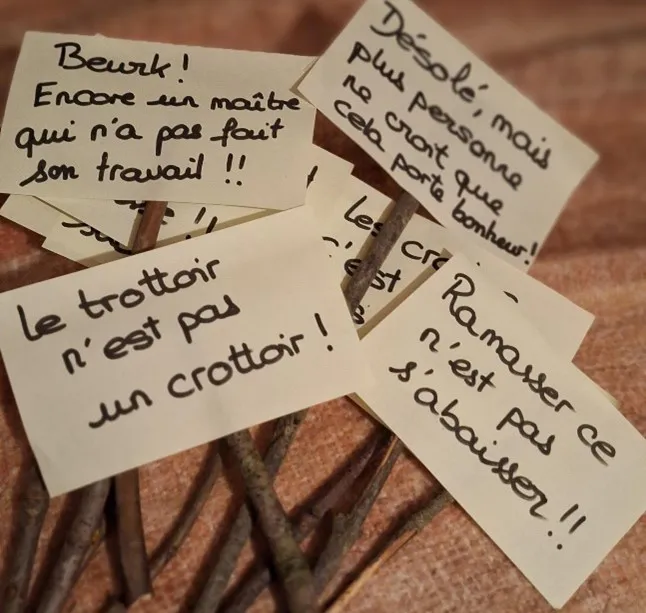 Beurk!
Encore un maître
qui n'a pas fait
son travail !!
Désolé, mais
plus personne
ne croit que
cela porte bonheur!
le trottoir
n'est pas
un crottoir !
Ramasser ce
n'est pas
s'abaisser!!
les
n'est